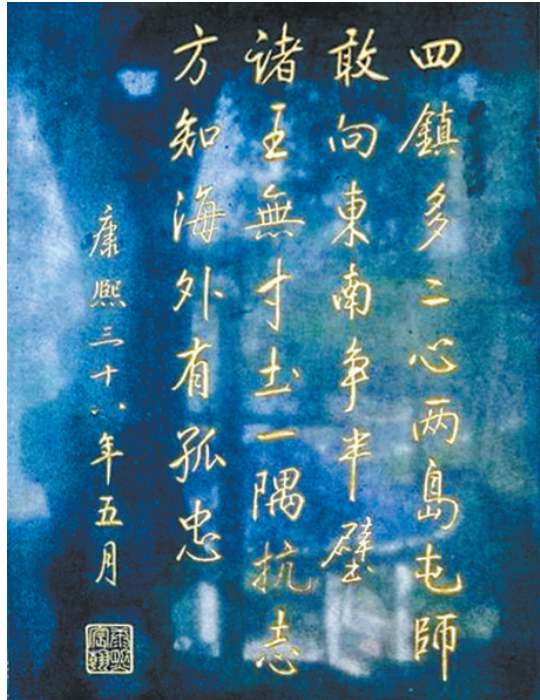 四鎮多二心两島屯師
敢向東南争半壁
诸王無寸土一隅抗志
方知海外有孤忠
康熙三十八年五月